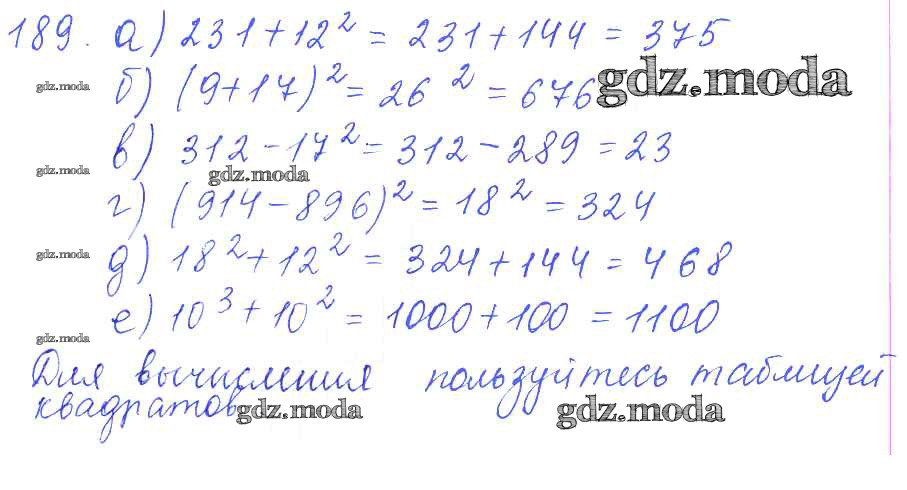 189. а) 231 + 12² = 231 + 144 = 375
gdz.moda б) (9+17)² = 26² = 676 gdz.moda
в) 312 - 17² = 312 - 289 = 23
gdz.moda gdz.moda
г) (914 - 896)² = 18² = 324
gdz.moda д) 18² + 12² = 324 + 144 = 468
е) 10³ + 10² = 1000 + 100 = 1100
gdz.moda
Для вычисления пользуйтесь таблицей
квадратов gdz.moda gdz.moda